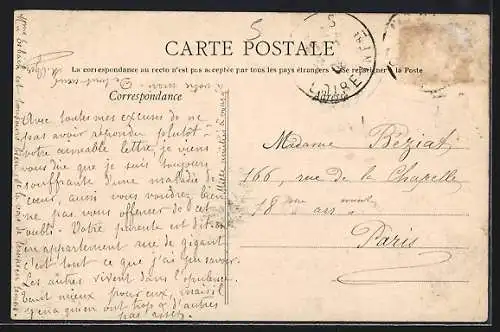 5
CARTE POSTALE
La correspondance au recto n'est pas acceptée par tous les pays étrangers (Se renseigner à la Poste
Correspondance
Adresse
LOIRE
Avec toutes mes excuses de ne
pas avoir répondu plutôt
votre aimable lettre je viens
vous dire que je suis toujours
souffrante d'une maladie de
cœur, aussi vous voudrez bien
ne pas vous offenser de cet
oubli. Votre parente est dit-on
en appartement rue de gigant
c'est tout ce que j'ai pu savoir.
Les autres vivent dans l'opulence
tant mieux pour eux, mais il
y en a qui en ont trop & d'autres
pas assez.
Madame Béziat
166, rue de la Chapelle
18 ème arr
Paris